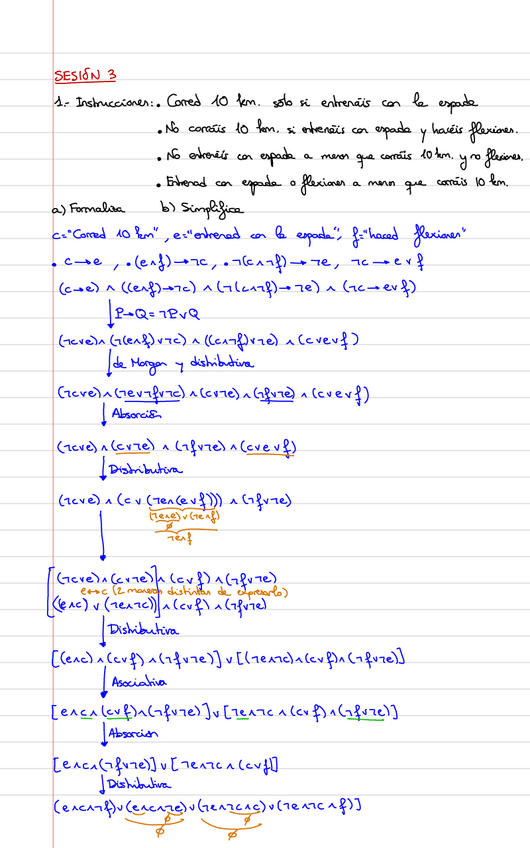 SESIÓN 3
1.- Instrucciones: • Corred 10 km. sólo si entrenáis con la espada
• No corráis 10 km. si entrenáis con espada y hacéis flexiones.
• No entrenéis con espada a menos que corráis 10 km. y no flexiones.
• Entrenad con espada o flexiones a menos que corráis 10 km.
a) Formaliza b) Simplifica
c="Corred 10 km", e="entrenad con la espada", f="haced flexiones"
• c→e , •(e∧f)→¬c, •¬(c∧¬f)→¬e, ¬c→e∨f
(c→e) ∧ ((e∧f)→¬c) ∧ (¬(c∧¬f)→¬e) ∧ (¬c→e∨f)
P→Q=¬P∨Q
(¬c∨e)∧(¬(e∧f)∨¬c) ∧ ((c∧¬f)∨¬e) ∧ (c∨e∨f)
de Morgan y distributiva
(¬c∨e)∧(¬e∨¬f∨¬c)∧(c∨¬e)∧(¬f∨¬e)∧(c∨e∨f)
Absorción
(¬c∨e)∧(c∨¬e)∧(¬f∨¬e)∧(c∨e∨f)
Distributiva
(¬c∨e)∧(c∨(¬e∧(e∨f)))∧(¬f∨¬e)
(¬e∧e)∨(¬e∧f)
∅
¬e∧f
[(¬c∨e)∧(c∨¬e)]∧(c∨f)∧(¬f∨¬e)
e↔c (2 maneras distintas de expresarlo)
[(e∧c)∨(¬e∧¬c)]∧(c∨f)∧(¬f∨¬e)
Distributiva
[(e∧c)∧(c∨f)∧(¬f∨¬e)]∨[(¬e∧¬c)∧(c∨f)∧(¬f∨¬e)]
Asociativa
[e∧c∧(c∨f)∧(¬f∨¬e)]∨[¬e∧¬c∧(c∨f)∧(¬f∨¬e)]
Absorción
[e∧c∧(¬f∨¬e)]∨[¬e∧¬c∧(c∨f)]
Distributiva
(e∧c∧¬f)∨(e∧c∧¬e)∨(¬e∧¬c∧c)∨(¬e∧¬c∧f)]
∅ ∅